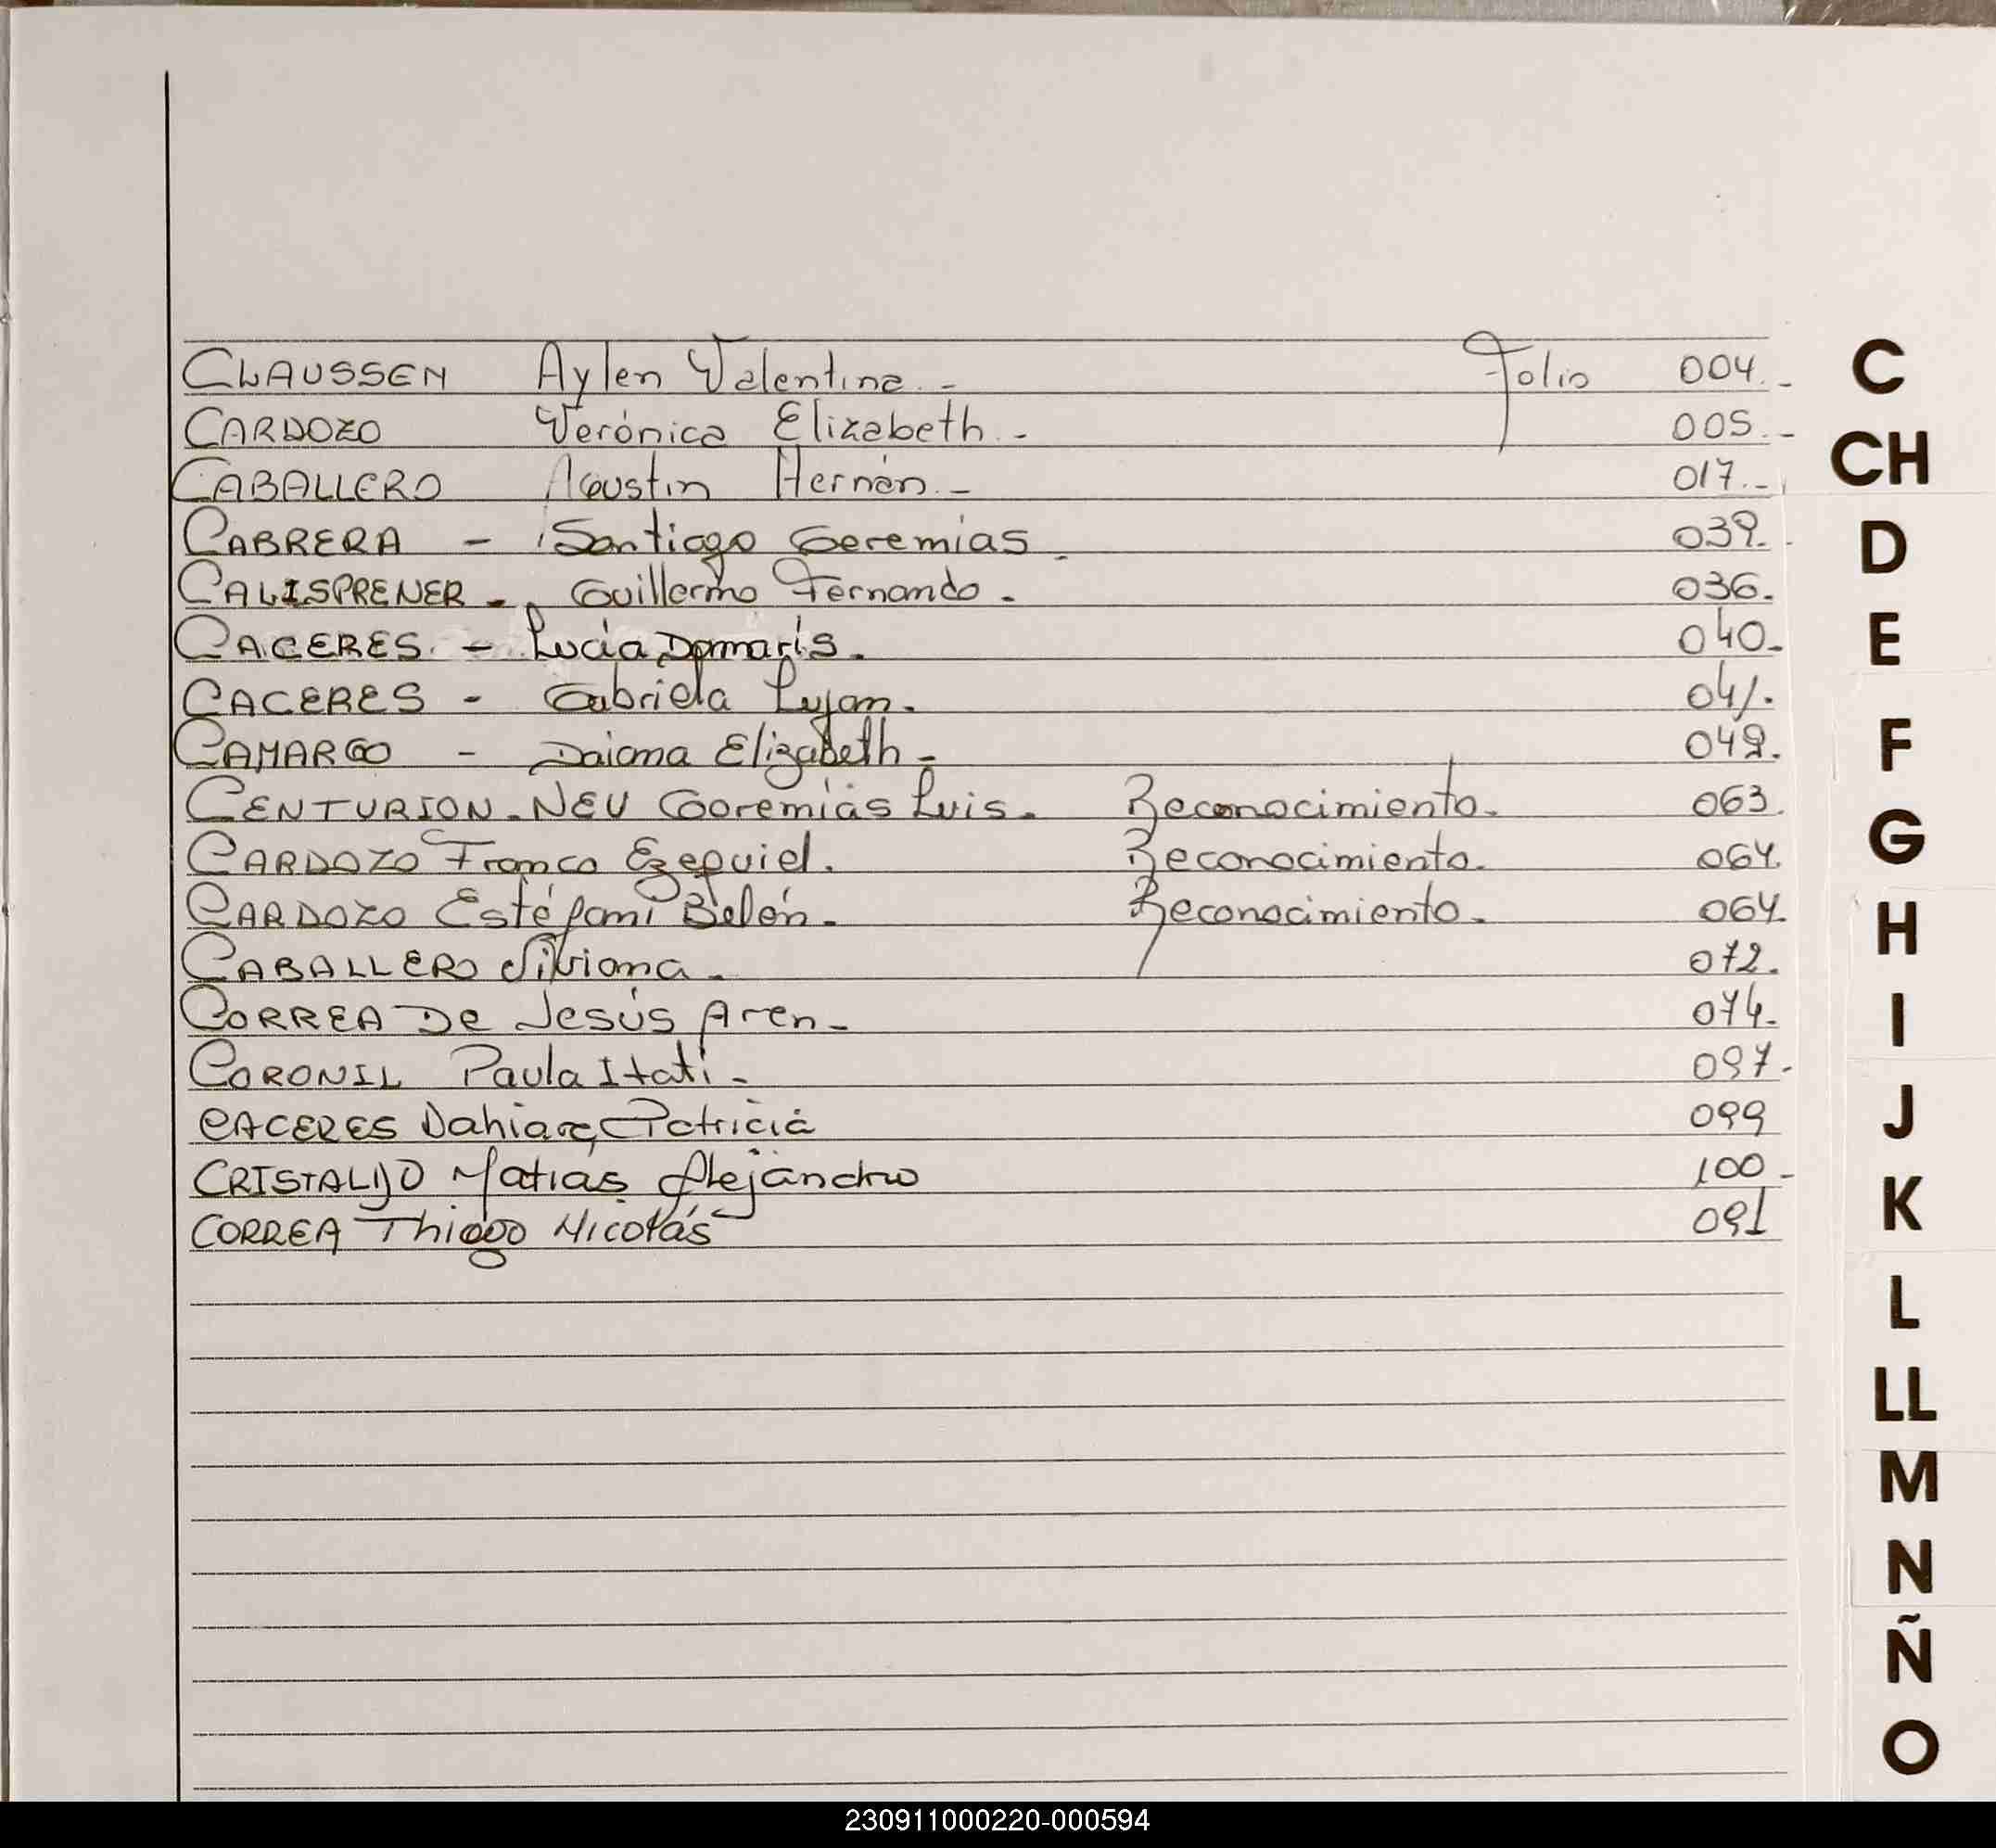 CLAUSSEN Aylen Valentina.- Folio 004.-
CARDOZO Verónica Elizabeth.- 005.-
CABALLERO Agustin Hernán.- 017.-
CABRERA - Santiago Geremias. 039.
CALISPRENER - Guillermo Fernando. 036.
CACERES. - Lucia Damaris. 040-
CACERES - Gabriela Lujan. 041.
CAMARGO - Daiana Elizabeth- 049.
CENTURION-NEU Geremias Luis. Reconocimiento. 063.
CARDOZO Franco Ezequiel. Reconocimiento. 064.
CARDOZO Estéfani Belén. Reconocimiento. 064.
CABALLERO Silviana. 072.
CORREA De Jesús Aren- 074.
CORONIL Paula Itati- 097.
CACERES Dahiara Patricia 099
CRISTALDO Matias Alejandro 100-
CORREA Thiago Nicolás 091
C
CH
D
E
F
G
H
I
J
K
L
LL
M
N
Ñ
O
230911000220-000594